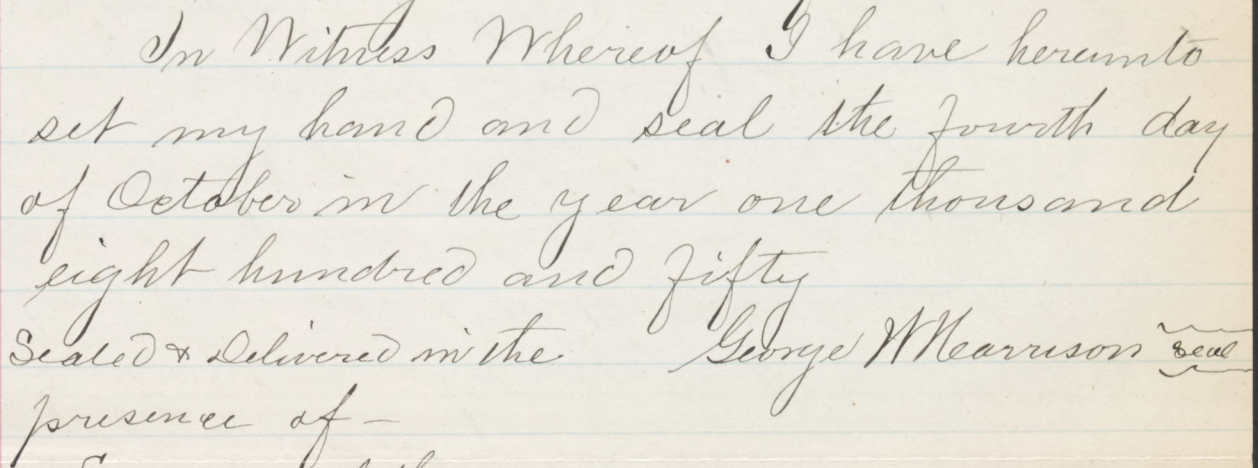 In Witness Whereof I have hereunto
set my hand and seal the fourth day
of October in the year one thousand
eight hundred and fifty
Sealed & Delivered in the George W seal
presence of —